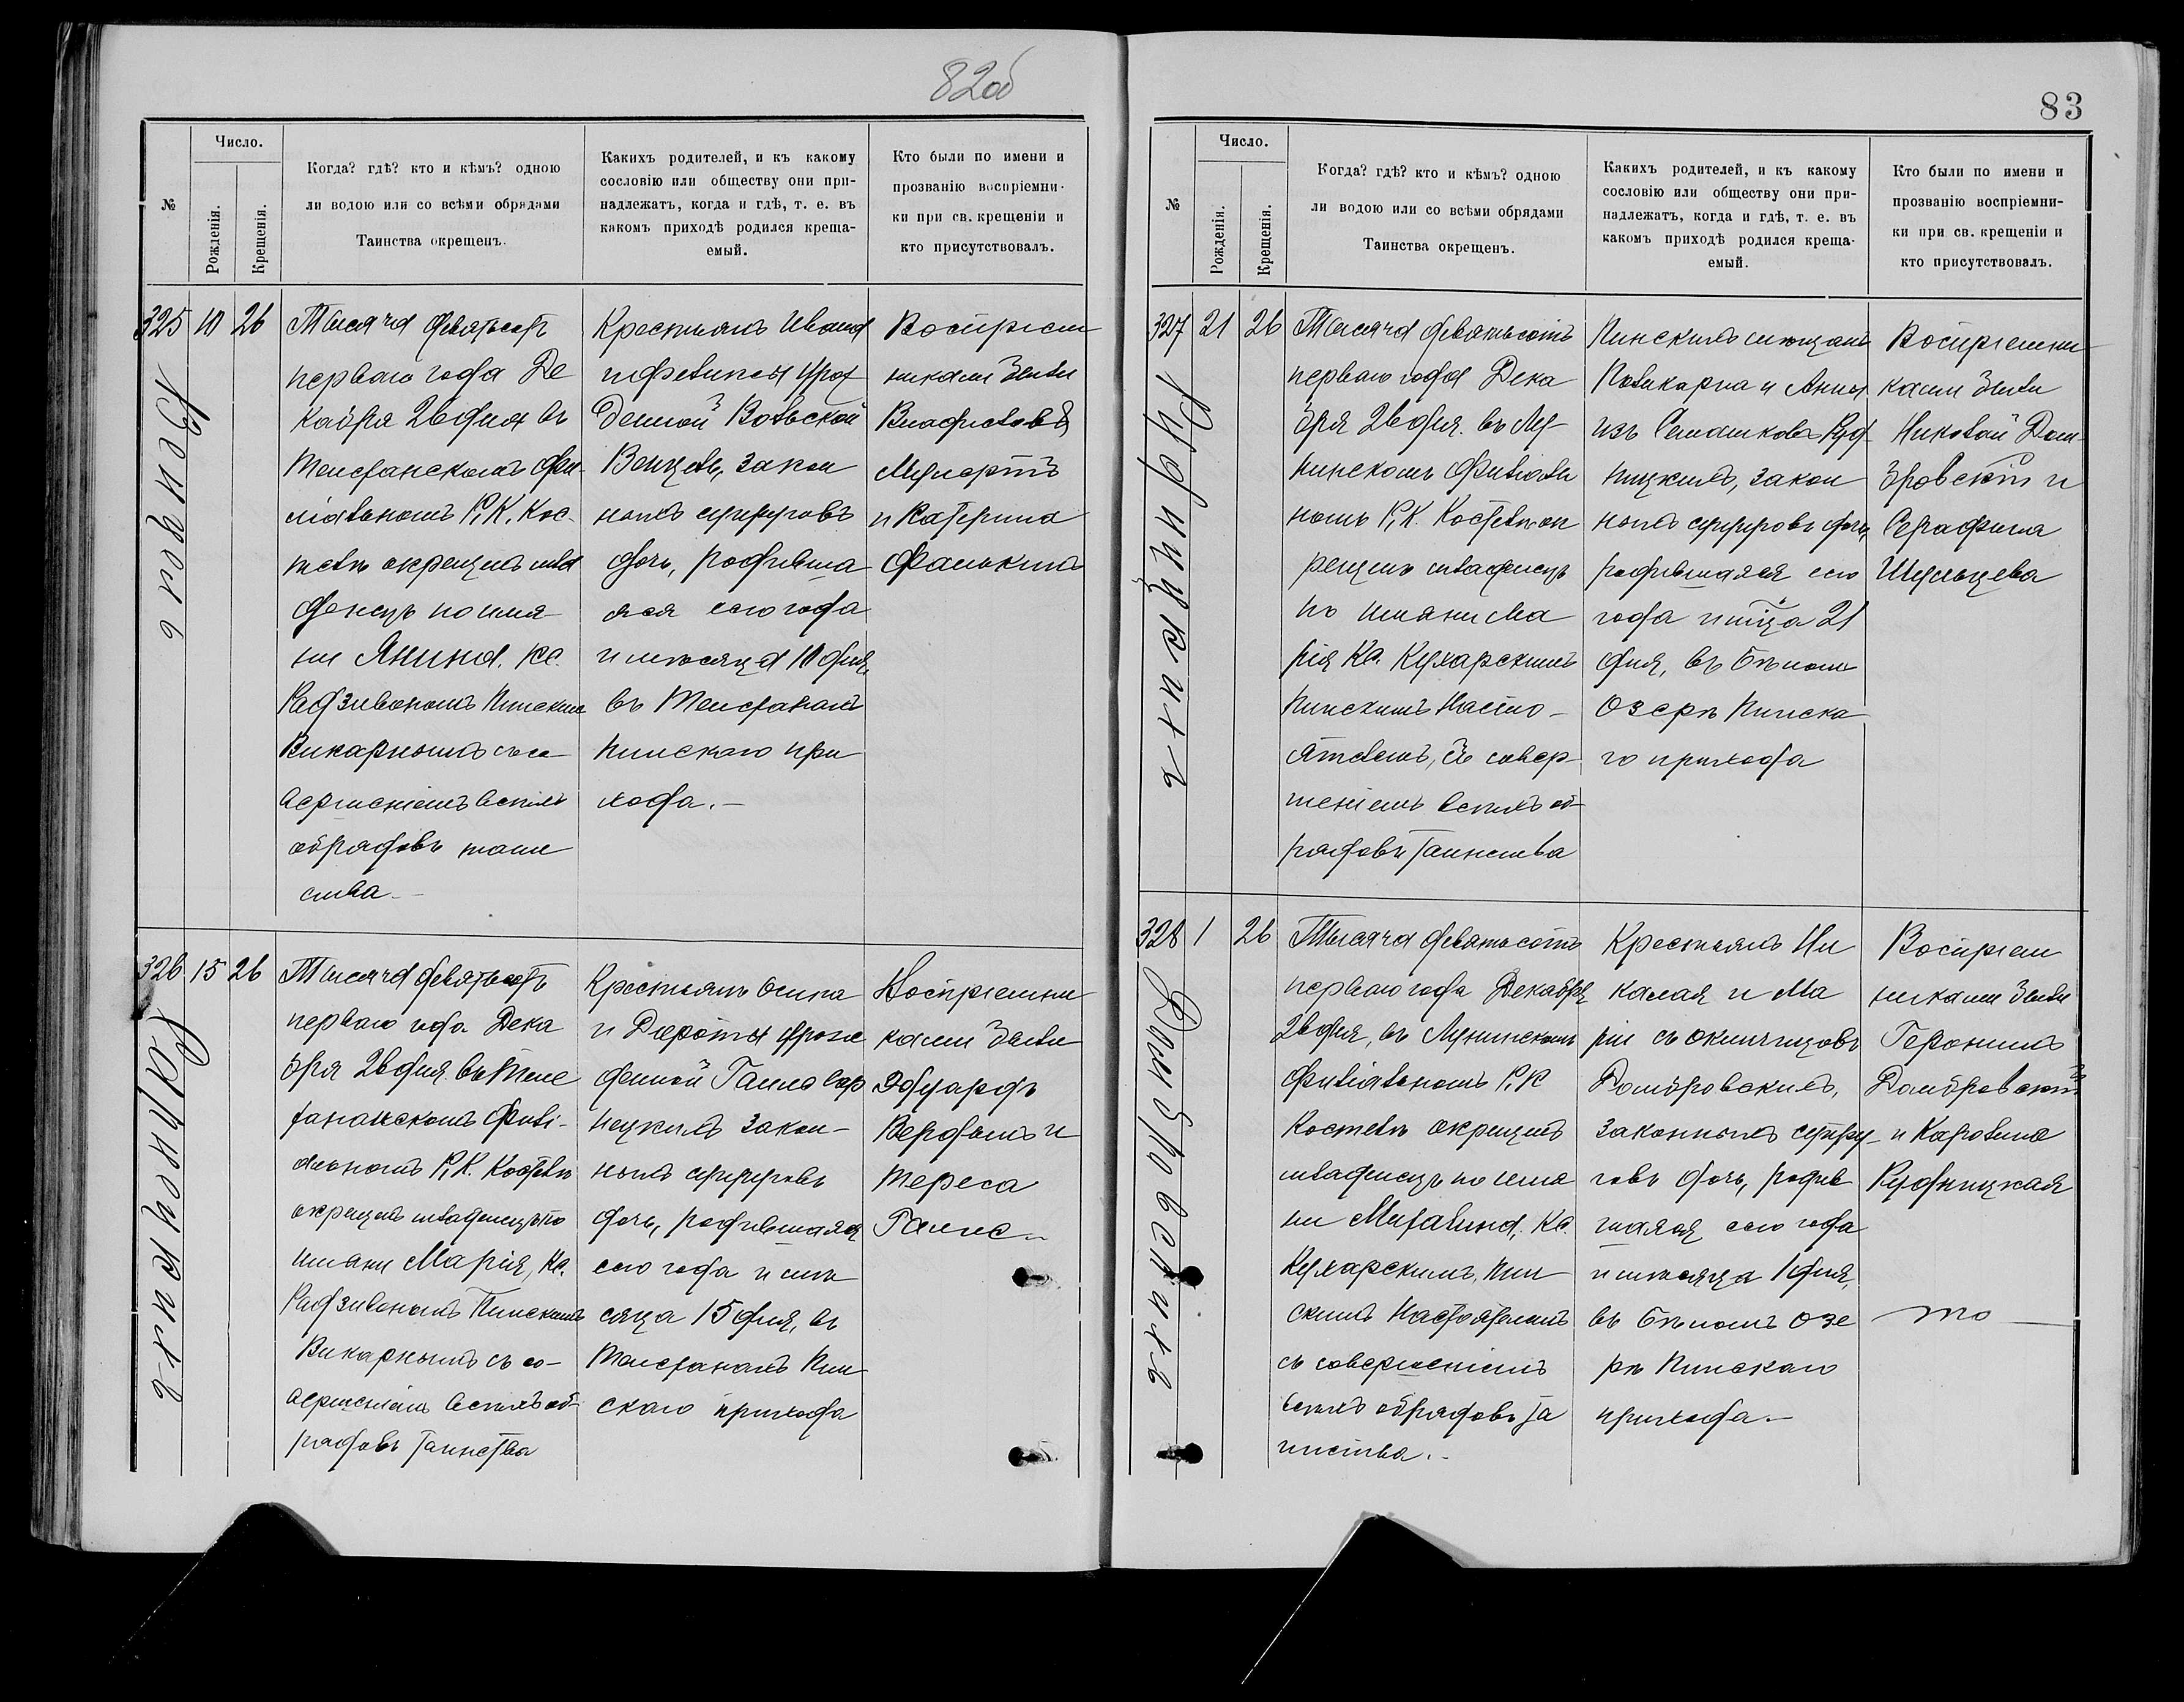 82об
№
Число.
Рожденія.
Крещенія.
Когда? гдѣ? кто и кѣмъ? одною
ли водою или со всѣми обрядами
Таинства окрещенъ.
Какихъ родителей, и къ какому
сословію или обществу они при-
надлежатъ, когда и гдѣ, т. е. въ
какомъ приходѣ родился креща-
емый.
Кто были по имени и
прозванію воспріемни-
ки при св. крещеніи и
кто присутствовалъ.
325 10 26
Тысяча девятьсотъ
перваго года Де
кабря 26 дня въ
Телеханскомъ фи-
ліальномъ Р, К, Кос-
телѣ окрещенъ мла
денецъ по имя-
ни Янина. Кс.
Радзивономъ Пинским
Викарнымъ съ со-
вершеніемъ всѣхъ
обрядовъ таин
ства.
Крестьянъ Ивана
рож
денной Вольской
закон
ныхъ супруговъ
дочь, родивша
яся сего года
и мѣсяца 10 дня,
въ Телеханахъ
Пинскаго при
хода.-
Воспріем
никами были
Владиславъ
и Катерина
326 15 26
Тысяча девятьсотъ
перваго года Дека
бря 26 дня въ Теле
ханскомъ фили-
альномъ Р, К. Костелѣ
окрещенъ младенецъ по
имяни Марія, Кс.
Радзивономъ Пинскимъ
Викарнымъ съ со-
вершеніемъ всѣхъ об-
рядовъ таинства
Крестьянъ Осипа
и Дороты урож
денной
закон-
ныхъ супруговъ
дочь, родившаяся
сего года и мѣ
сяца 15 дня, въ
Телеханахъ Пин
скаго прихода
Воспріемни
ками были
Эдуардъ
и
Тереса
83
№
Число.
Рожденія.
Крещенія.
Когда? гдѣ? кто и кѣмъ? одною
ли водою или со всѣми обрядами
Таинства окрещенъ.
Какихъ родителей, и къ какому
сословію или обществу они при-
надлежатъ, когда и гдѣ, т. е. въ
какомъ приходѣ родился креща-
емый.
Кто были по имени и
прозванію воспріемни-
ки при св. крещеніи и
кто присутствовалъ.
327 21 26
Рудницкихъ
Тысяча девятьсотъ
перваго года Дека
бря 26 дня. въ Лу
нинскомъ Филіаль
номъ Р, К. Костелѣ ок
рещенъ младенецъ
по имяни Ма
рія Кс. Кухарскимъ
Пинскимъ Насто-
ятелемъ, съ совер-
шеніемъ всѣхъ об-
рядовъ Таинства
Пинскихъ мѣщанъ
Поликарпа и Анны
изъ Семашковъ Руд-
ницкихъ, закон
ныхъ супруговъ дочь,
родившаяся сего
года и м-ца 21
дня, въ Бѣломъ
Озерѣ Пинска
го прихода
Воспріемни
ками были
Николай Дом-
бровскій и
Серафима
328 1 26
Домбровскихъ
Тысяча девятьсотъ
перваго года Декабря
26 дня, въ Лунинскомъ
Филіальномъ Р, К
Костелѣ окрещенъ
младенецъ по имя
ни Михалина, Кс.
Кухарскимъ, Пин
скимъ Настоятелемъ
съ совершеніемъ
всѣхъ обрядовъ та
инства.-
Крестьянъ Ни
калая и Ма
ріи съ Окинчицовъ
Домбровскихъ,
законныхъ супру-
говъ дочь, родив
шаяся сего года
и мѣсяца 1 дня,
въ Бѣломъ Озе
рѣ Пинскаго
прихода.-
Воспріем
никами были
Геронимъ
Домбровскій
и Каролина
Рудницкая